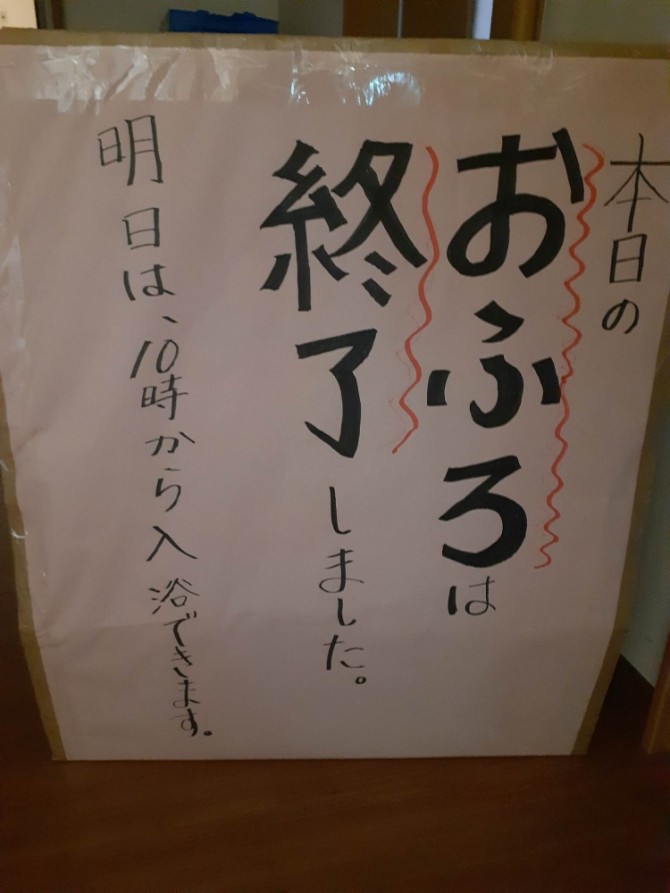 本日の
おふろは
終了しました。
明日は、10時から入浴できます。